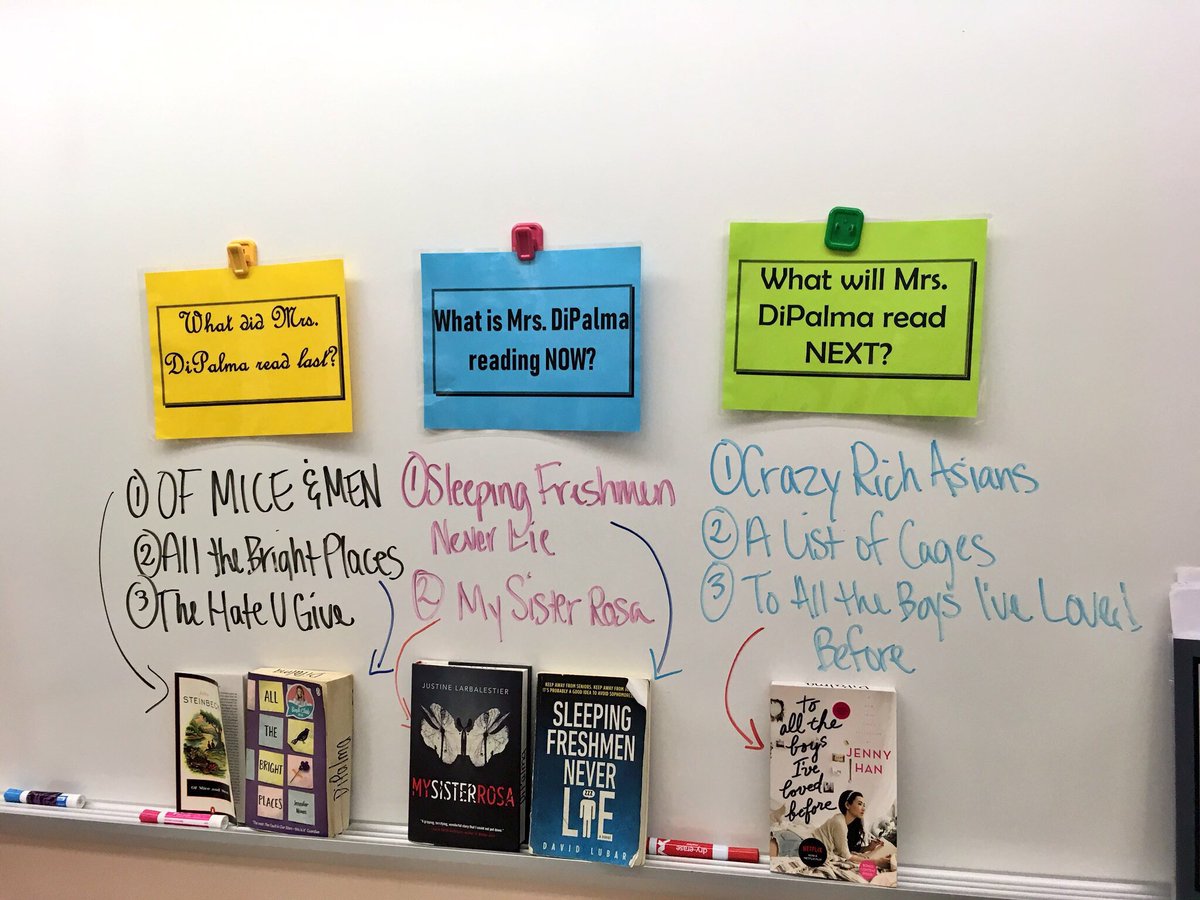 What did Mrs.
DiPalma read last?
What is Mrs. DiPalma
reading NOW?
What will Mrs.
DiPalma read
NEXT?
① OF MICE & MEN
② All the Bright Places
③ The Hate U Give
① Sleeping Freshmen
Never Lie
② My Sister Rosa
① Crazy Rich Asians
② A List of Cages
③ To All the Boys I've Loved
Before
STEINBECK
DiPalma
ALL
THE
BRIGHT
PLACES
Jennifer
Niven
DiPalma
JUSTINE LARBALESTIER
MYSISTERROSA
KEEP AWAY FROM SENIORS. KEEP AWAY FROM
IT'S PROBABLY A GOOD IDEA TO AVOID SOPHOMORES
SLEEPING
FRESHMEN
NEVER
LIE
DAVID LUBAR
to
all the
boys
I've
loved
before
JENNY
HAN
NETFLIX
dry-erase